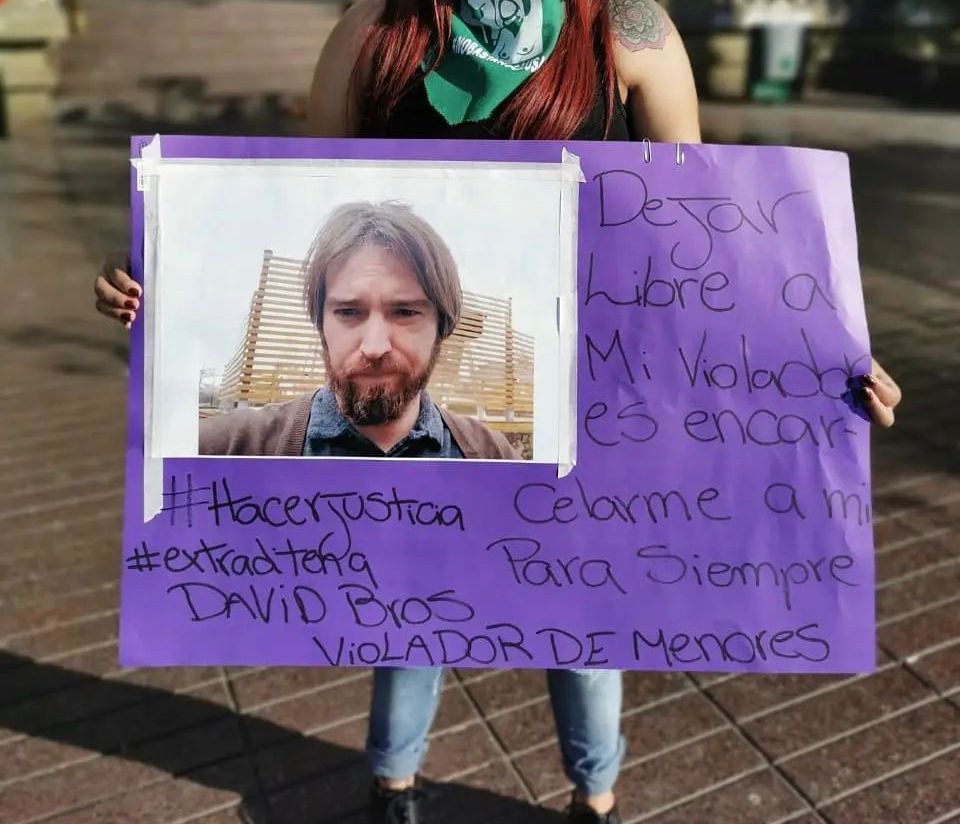 Dejar
Libre a
Mi Violador
es encar-
Celarme a mi
Para Siempre
#Hacerjusticia
#extraditena
DAVID Bros
VIOLADOR DE Menores